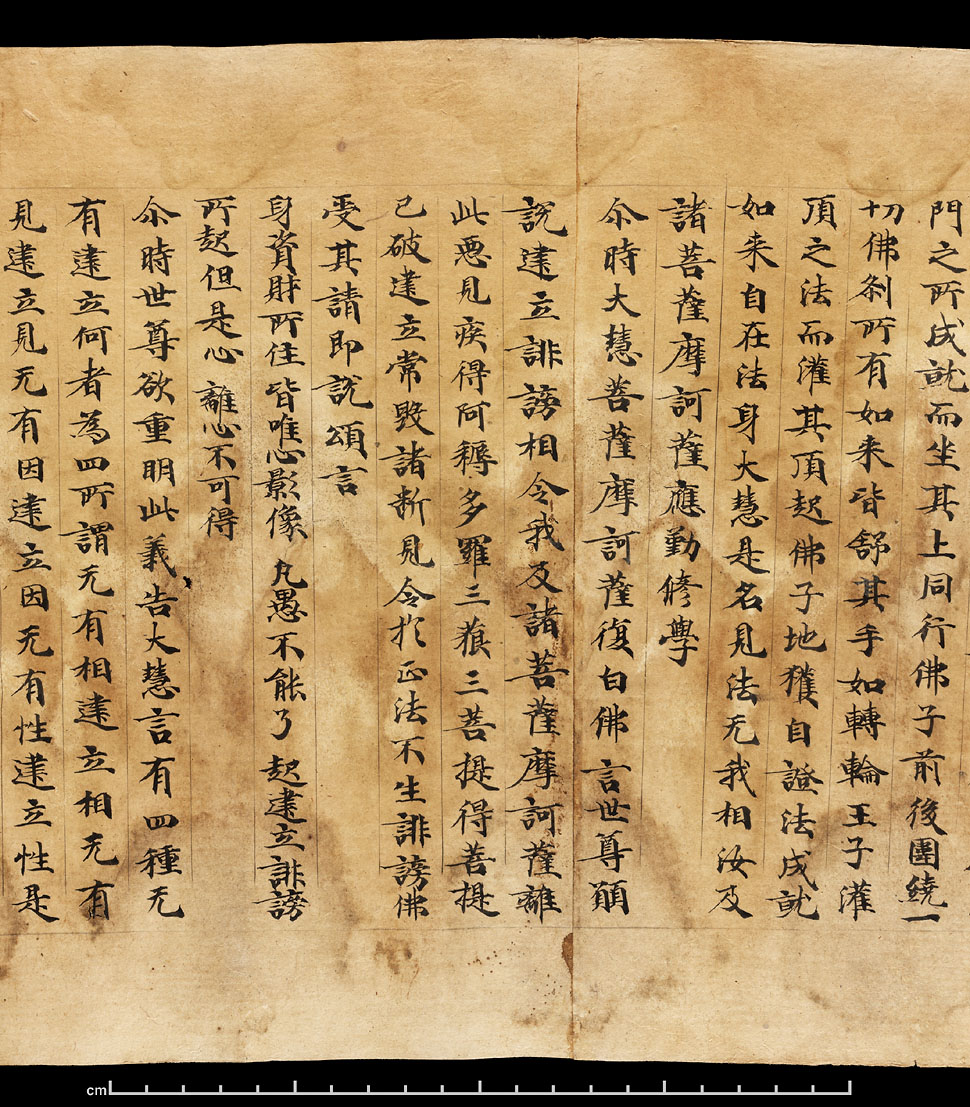 門之所成就而坐其上同行佛子前後圍繞一
切佛剎所有如来皆舒其手如轉輪王子灌
頂之法而灌其頂起佛子地獲自證法成就
如来自在法身大慧是名見法无我相汝及
諸菩薩摩訶薩應勤修學
尒時大慧菩薩摩訶薩復白佛言世尊願
說建立誹謗相令我及諸菩薩摩訶薩離
此惡見疾得阿耨多羅三藐三菩提得菩提
已破建立常毀諸断見令扵正法不生誹謗佛
受其請即說頌言
身資財所住皆唯心影像 凡愚不能了 起建立誹謗
所起但是心 離心不可得
尒時世尊欲重明此義告大慧言有四種无
有建立何者為四所謂无有相建立相无有
見建立見无有因建立因无有性建立性是